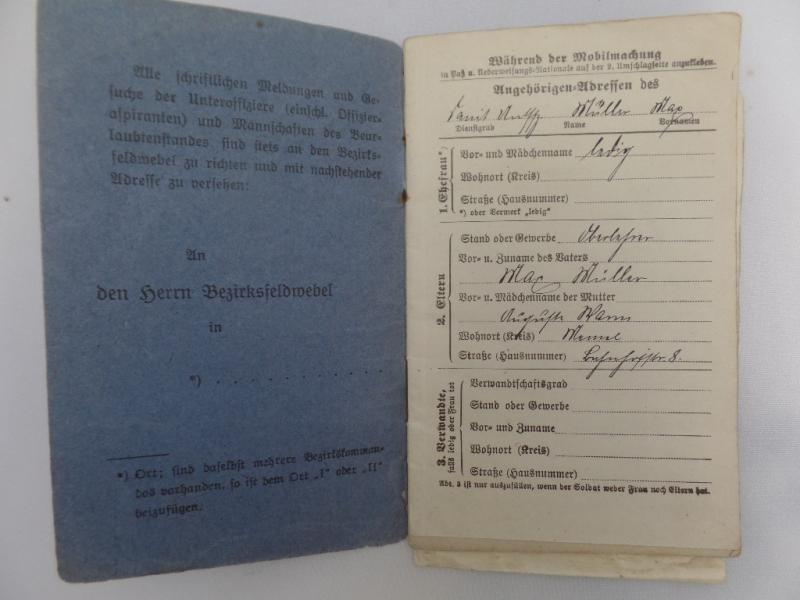 Alle schriftlichen Meldungen und Ge-
suche der Unteroffiziere (einschl. Offizier-
aspiranten) und Mannschaften des Beur-
laubtenstandes sind stets an den Bezirks-
feldwebel zu richten und mit nachstehender
Adresse zu versehen:
An
den Herrn Bezirksfeldwebel
in
*) . . . . . . . . . . . .
*) Ort; sind daselbst mehrere Bezirkskomman-
dos vorhanden, so ist dem Ort „I" oder „II"
beizufügen.
Während der Mobilmachung
in Paß u. Ueberweisungs-Nationale auf der 2. Umschlagseite anzukleben.
Angehörigen-Adressen des
Müller Max
Dienstgrad Name Vornamen
1. Ehefrau*)
Vor- und Mädchenname ledig
Wohnort (Kreis)
Straße (Hausnummer)
*) oder Vermerk „ledig"
2. Eltern
Stand oder Gewerbe Oberlehrer
Vor- u. Zuname des Vaters
Max Müller
Vor- u. Mädchenname der Mutter
Auguste Wann
Wohnort (Kreis) Memel
Straße (Hausnummer) Bahnhofstr. 8.
3. Verwandte,
falls ledig oder Frau tot
Verwandtschaftsgrad
Stand oder Gewerbe
Vor- und Zuname
Wohnort (Kreis)
Straße (Hausnummer)
Abt. 3 ist nur auszufüllen, wenn der Soldat weder Frau noch Eltern hat.